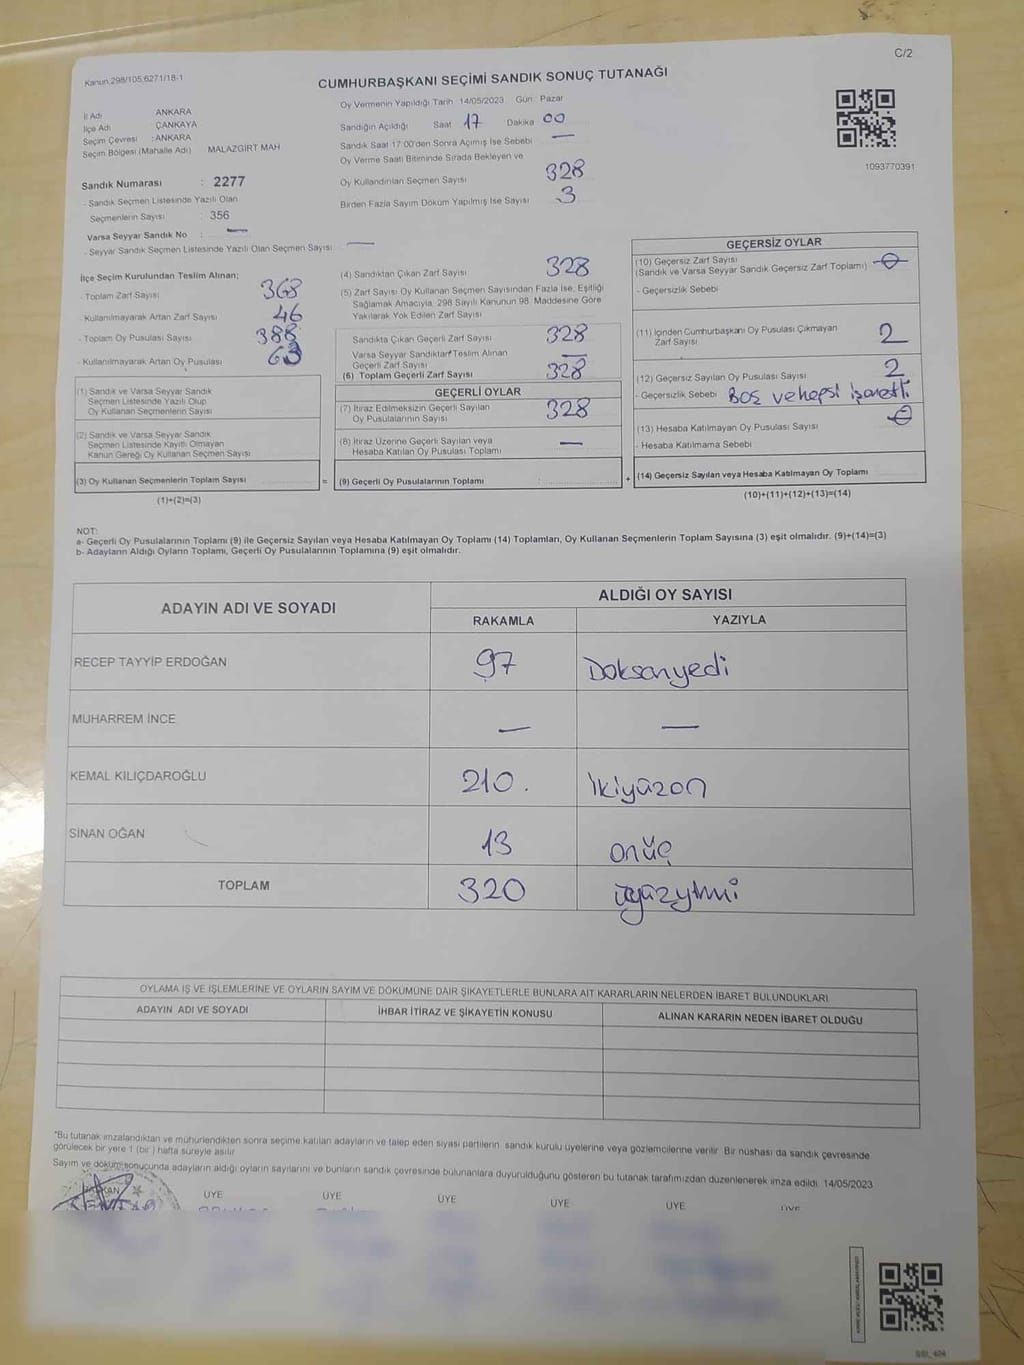 C/2
Kanun 298/105.6271/18-1
CUMHURBAŞKANI SEÇİMİ SANDIK SONUÇ TUTANAĞI
İl Adı ANKARA
İlçe Adı ÇANKAYA
Seçim Çevresi : ANKARA
Seçim Bölgesi (Mahalle Adı) MALAZGİRT MAH
Oy Vermenin Yapıldığı Tarih 14/05/2023 Gün Pazar
Sandığın Açıldığı Saat 17 Dakika 00
Sandık Saat 17:00'den Sonra Açılmış İse Sebebi —
Oy Verme Saati Bitiminde Sırada Bekleyen ve
Oy Kullandırılan Seçmen Sayısı 328
Birden Fazla Sayım Döküm Yapılmış İse Sayısı 3
1093770391
Sandık Numarası : 2277
- Sandık Seçmen Listesinde Yazılı Olan
Seçmenlerin Sayısı : 356
Varsa Seyyar Sandık No : —
- Seyyar Sandık Seçmen Listesinde Yazılı Olan Seçmen Sayısı : —
İlçe Seçim Kurulundan Teslim Alınan;
- Toplam Zarf Sayısı 368
- Kullanılmayarak Artan Zarf Sayısı 46
- Toplam Oy Pusulası Sayısı 388
- Kullanılmayarak Artan Oy Pusulası 63
(1) Sandık ve Varsa Seyyar Sandık
Seçmen Listesinde Yazılı Olup
Oy Kullanan Seçmenlerin Sayısı
(2) Sandık ve Varsa Seyyar Sandık
Seçmen Listesinde Kayıtlı Olmayan
Kanun Gereği Oy Kullanan Seçmen Sayısı
(3) Oy Kullanan Seçmenlerin Toplam Sayısı =
(1)+(2)=(3)
(4) Sandıktan Çıkan Zarf Sayısı 328
(5) Zarf Sayısı Oy Kullanan Seçmen Sayısından Fazla İse, Eşitliği
Sağlamak Amacıyla, 298 Sayılı Kanunun 98. Maddesine Göre
Yakılarak Yok Edilen Zarf Sayısı
Sandıkta Çıkan Geçerli Zarf Sayısı 328
Varsa Seyyar Sandıktan Teslim Alınan
Geçerli Zarf Sayısı —
(6) Toplam Geçerli Zarf Sayısı 328
GEÇERLİ OYLAR
(7) İtiraz Edilmeksizin Geçerli Sayılan
Oy Pusulalarının Sayısı 328
(8) İtiraz Üzerine Geçerli Sayılan veya
Hesaba Katılan Oy Pusulası Toplamı —
(9) Geçerli Oy Pusulalarının Toplamı : +
GEÇERSİZ OYLAR
(10) Geçersiz Zarf Sayısı
(Sandık ve Varsa Seyyar Sandık Geçersiz Zarf Toplamı)
- Geçersizlik Sebebi
(11) İçinden Cumhurbaşkanı Oy Pusulası Çıkmayan
Zarf Sayısı 2
(12) Geçersiz Sayılan Oy Pusulası Sayısı 2
- Geçersizlik Sebebi Boş ve hepsi işaretli
(13) Hesaba Katılmayan Oy Pusulası Sayısı
- Hesaba Katılmama Sebebi
(14) Geçersiz Sayılan veya Hesaba Katılmayan Oy Toplamı
(10)+(11)+(12)+(13)=(14)
NOT:
a- Geçerli Oy Pusulalarının Toplamı (9) ile Geçersiz Sayılan veya Hesaba Katılmayan Oy Toplamı (14) Toplamları, Oy Kullanan Seçmenlerin Toplam Sayısına (3) eşit olmalıdır. (9)+(14)=(3)
b- Adayların Aldığı Oyların Toplamı, Geçerli Oy Pusulalarının Toplamına (9) eşit olmalıdır.
ADAYIN ADI VE SOYADI ALDIĞI OY SAYISI
RAKAMLA YAZIYLA
RECEP TAYYİP ERDOĞAN 97 Doksanyedi
MUHARREM İNCE — —
KEMAL KILIÇDAROĞLU 210. İkiyüzon
SİNAN OĞAN 13 onüç
TOPLAM 320 üçyüzyirmi
OYLAMA İŞ VE İŞLEMLERİNE VE OYLARIN SAYIM VE DÖKÜMÜNE DAİR ŞİKAYETLERLE BUNLARA AİT KARARLARIN NELERDEN İBARET BULUNDUKLARI
ADAYIN ADI VE SOYADI İHBAR İTİRAZ VE ŞİKAYETİN KONUSU ALINAN KARARIN NEDEN İBARET OLDUĞU
*Bu tutanak imzalandıktan ve mühürlendikten sonra seçime katılan adayların ve talep eden siyasi partilerin sandık kurulu üyelerine veya gözlemcilerine verilir. Bir nüshası da sandık çevresinde
görülecek bir yere 1 (bir) hafta süreyle asılır
Sayım ve döküm sonucunda adayların aldığı oyların sayılarını ve bunların sandık çevresinde bulunanlara duyurulduğunu gösteren bu tutanak tarafımızdan düzenlenerek imza edildi. 14/05/2023
BAŞKAN ÜYE ÜYE ÜYE ÜYE ÜYE ÜYE